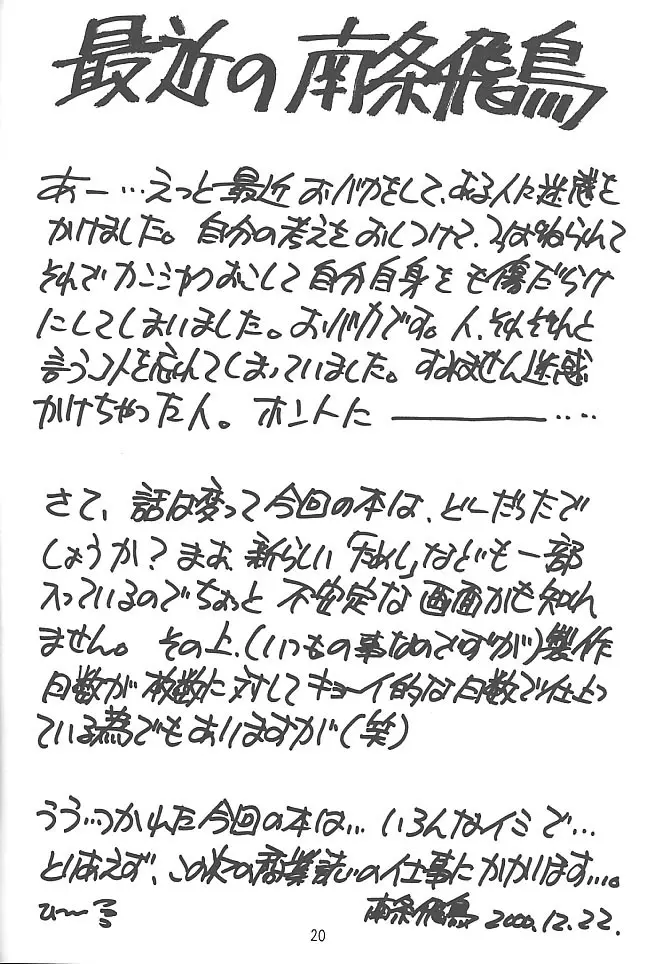 最近の南条飛鳥
あー…えっと最近おバカをして、ある人に迷惑を
かけました。自分の考えをおしつけて、つっぱねられて
それでカンシャクおこして自分自身をも傷だらけ
にしてしまいました。おバカです。人、それぞれと
言うコトを忘れてしまっていました。すみません迷惑
かけちゃった人。ホントに――――――‥‥
さて、話は変って今回の本は、どーだったで
しょうか?まあ、新らしい「ためし」なども一部
入っているのでちょっと不安定な画面かも知れ
ません。その上、(いつもの事なのですが)製作
日数が枚数に対してキョーイ的な日数で仕上っ
ている為でもありますが(笑)
うう…つかれた今回の本は…いろんなイミで…
とりあえず、この次の商業誌の仕事にかかります…。
ひ〜る
南条飛鳥 2000.12.22.
20